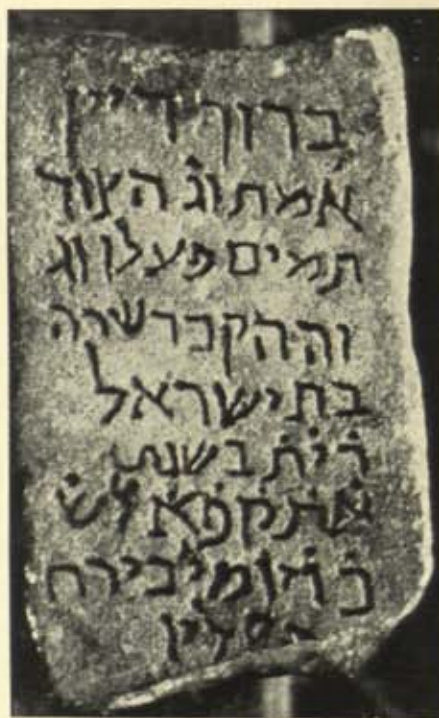 ברוך דיין
אמת וג הצור
תמים פעלו וג
וההקבר שרה
בת ישראל
רית בשנת
אתקפא לש
יומי בירח